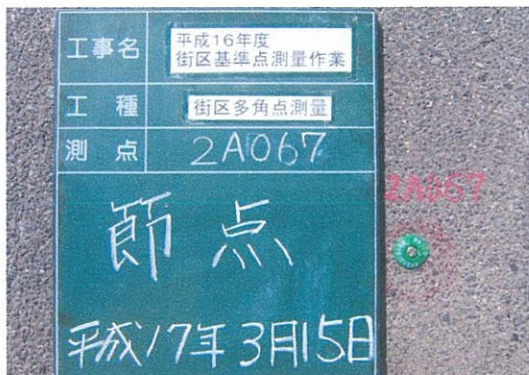 工事名 平成16年度
街区基準点測量作業
工種 街区多角点測量
測点 2A067
2A067
節点
平成17年3月15日